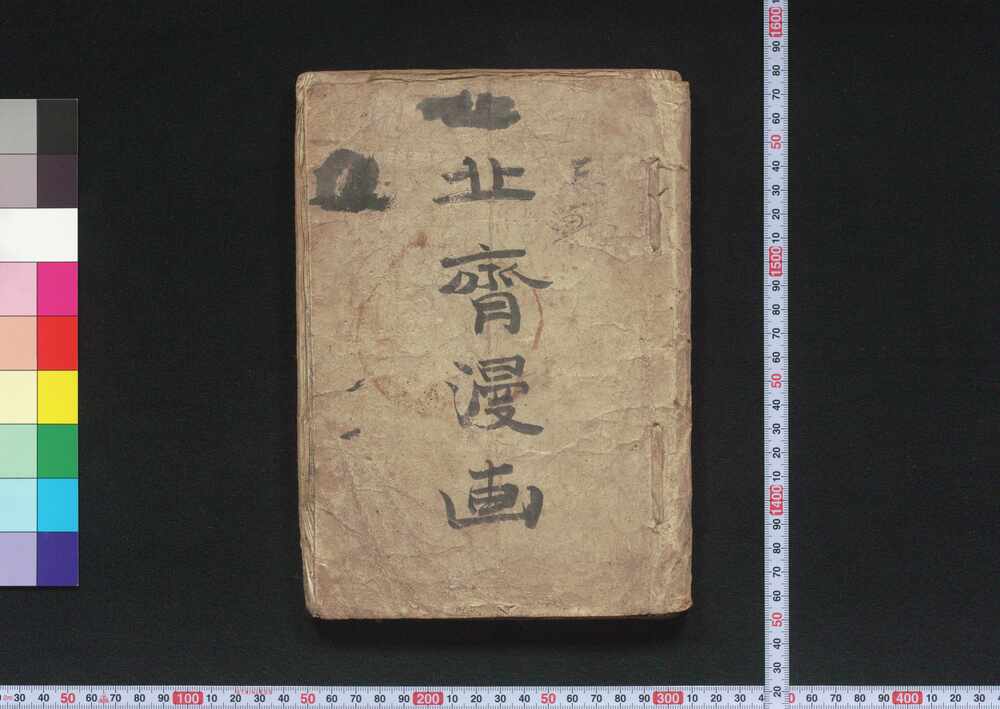 北
北齊漫画
1600
90
80
70
60
50
40
30
20
10
1500
90
80
70
60
50
40
30
20
10
1400
90
80
70
60
50
40
30
20
30 40 50 60 70 80 90 100 10 20 30 40 50 60 70 80 90 200 10 20 30 40 50 60 70 80 90 300 10 20 30 4 0 60 70 80 90 400 10 20 30 4